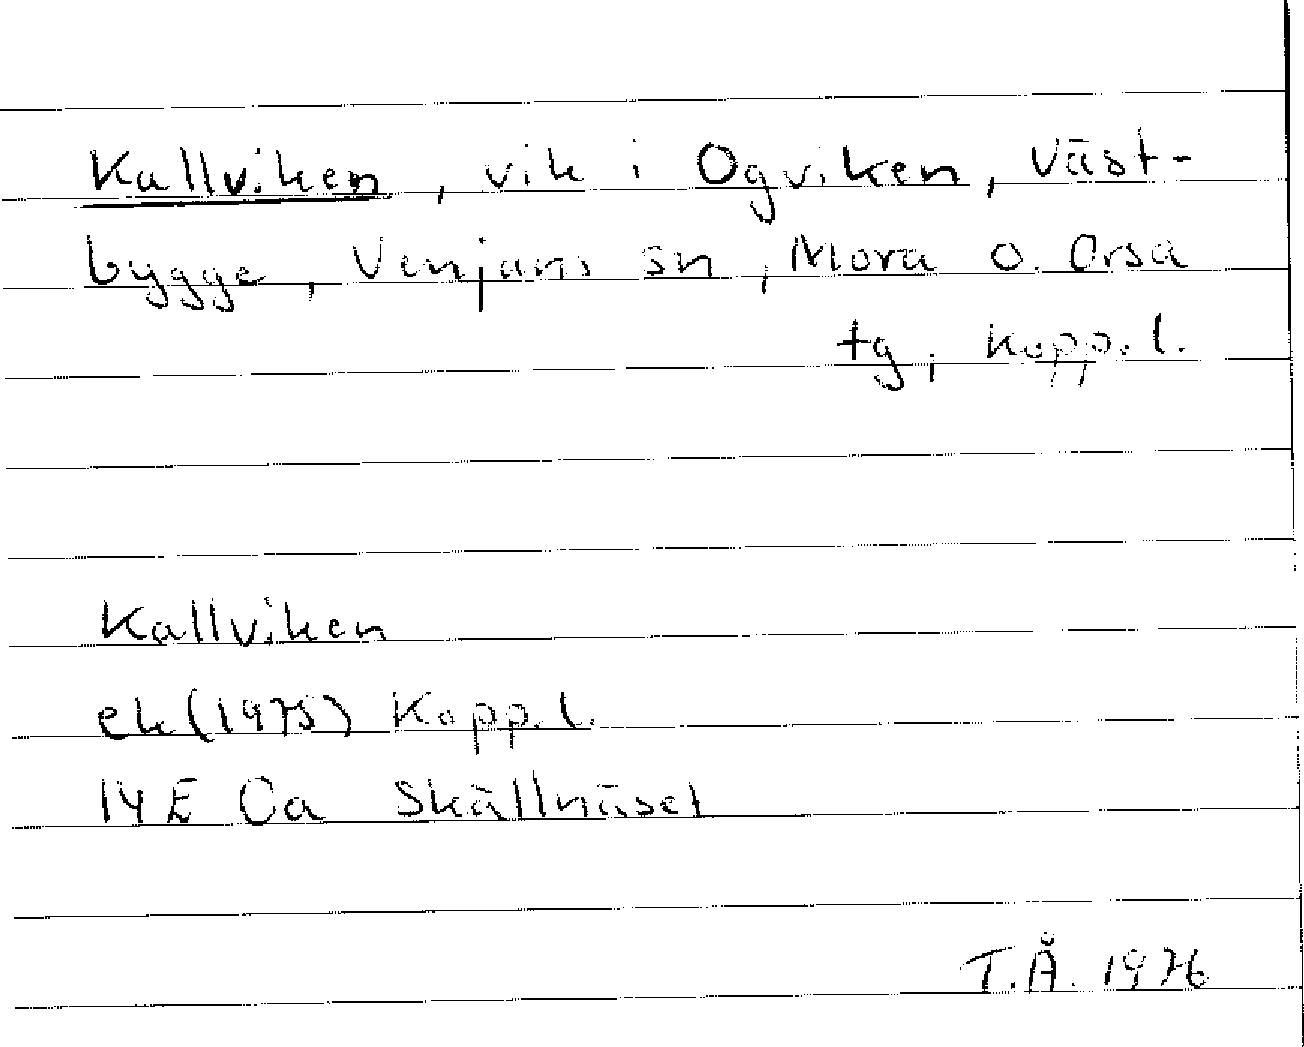 Kallviken, vik i Ogviken, Väst-
bygge, Venjans sn, Mora o. Orsa
tg, Kopp. l.
Kallviken
ek (1975) Kopp. l.
14 E Oa Skällnäset
T.Å. 1976